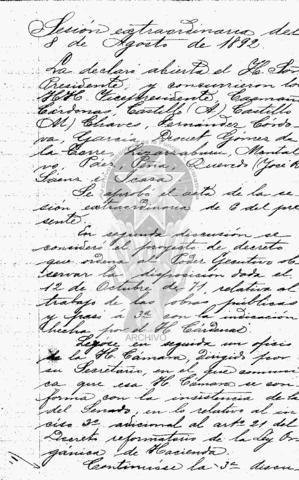 Sesión extraordinaria del
8 de Agosto de 1892.
La declaró abierta el H. Sor
Presidente, y concurrieron los
HH. Vicepresidente, Caamaño
Cárdenas, Castillo (A) Castillo
(M) Chaves, Fernández Córdo
va, García, Gómez de
la Torre, Montal
vo, Páez, Peña, Quevedo (José R
Sáenz i
Se aprobó el acta de la se
sión extraordinaria de 6 del pre
sente.
En segunda discusión se
consideró el proyecto de decreto
que ordena al Poder Ejecutivo ob
servar la disposición dada el
12 de Octubre de 71, relativa al
trabajo de las obras públicas
y pasó á 3a con la indicación
hecha por el H. Cárdenas.
ARCHIVO
Leyóse en seguida un oficio
de la H. Cámara, dirigido por
su Secretario, en el que comuni
ca que esa H. Cámara se con
forma con la insistencia de la
del Senado, en lo relativo al in
ciso 3o adicional al arto 21 del
Decreto reformatorio de la Ley Or
gánica de Hacienda.
Continuóse la 3a discu